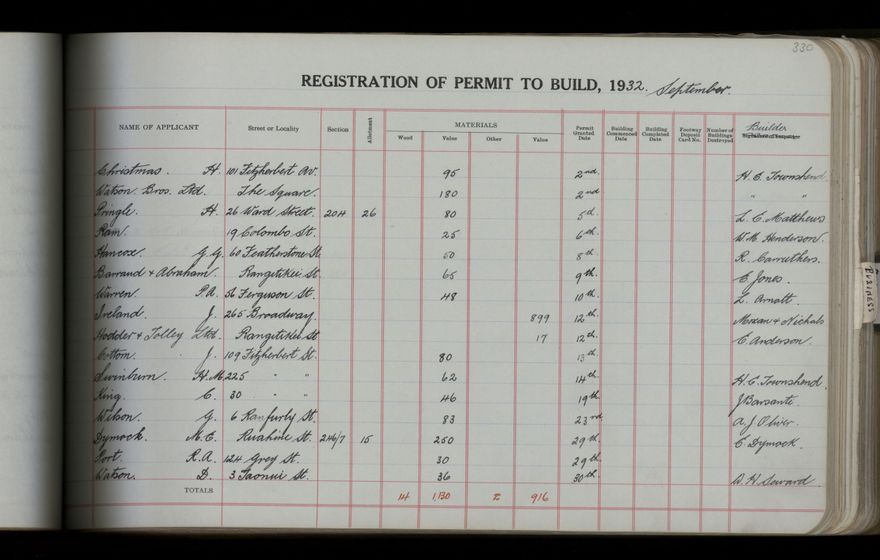 330
REGISTRATION OF PERMIT TO BUILD, 1932. September.
NAME OF APPLICANT Street or Locality Section Allotment MATERIALS Wood Value Other Value Permit Granted Date Building Commenced Date Building Completed Date Footway Deposit Card No. Number of Buildings Destroyed Builder
Christmas. H. 101 Fitzherbert Av. 95 2nd. H. C. Townshend
Watson Bros. Ltd. The Square. 180 2nd " "
Pringle. H. 26 Ward Street. 204 26 80 5th. L. C. Matthews
Ram. 19 Colombo St. 25 6th. W. M. Henderson.
Hancox. G. G. 60 Featherstone St. 50 8th. R. Carruthers.
Barraud & Abraham. Rangitikei St. 65 9th. C. Jones.
Warren. P.A. 56 Ferguson St. 48 10th. L. Arnott.
Ireland. J. 265 Broadway. 899 12th. & Nichols
Hodder & Tolley Ltd. Rangitikei St 17 12th. C. Anderson.
Cottom. J. 109 Fitzherbert St. 80 13th.
Swinburn. H. M. 225 " " 62 14th. H. C. Townshend.
King. C. 30 " " 46 19th. J Barsanti.
Wilson. G. 6 Ranfurly St. 83 23rd. A. J Oliver.
Dymock. M. C. Ruahine St. 246/7 15 250 29th. C. Dymock.
Port. R.A. 124 Grey St. 30 29th.
Watson. D. 3 Taonui St. 36 30th. W. H Seward.
TOTALS 14 1,130 2 916
BUSINESS